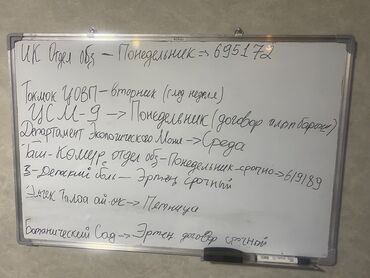 ИК Отдел обз — Понедельник => 695172
Токмок ЦОВП — вторник (след неделя)
ЦСМ-9 —> Понедельник (договор алып барам)
Департамент Экологического Мони —> Среда
Таш-Көмүр отдел обз-Понедельник срочно=>619189
3-Детский боль — Эртең срочный
Элчек Тилоа ай-өк —> Пятница
Ботанический Сад —> Эртең договор срочный